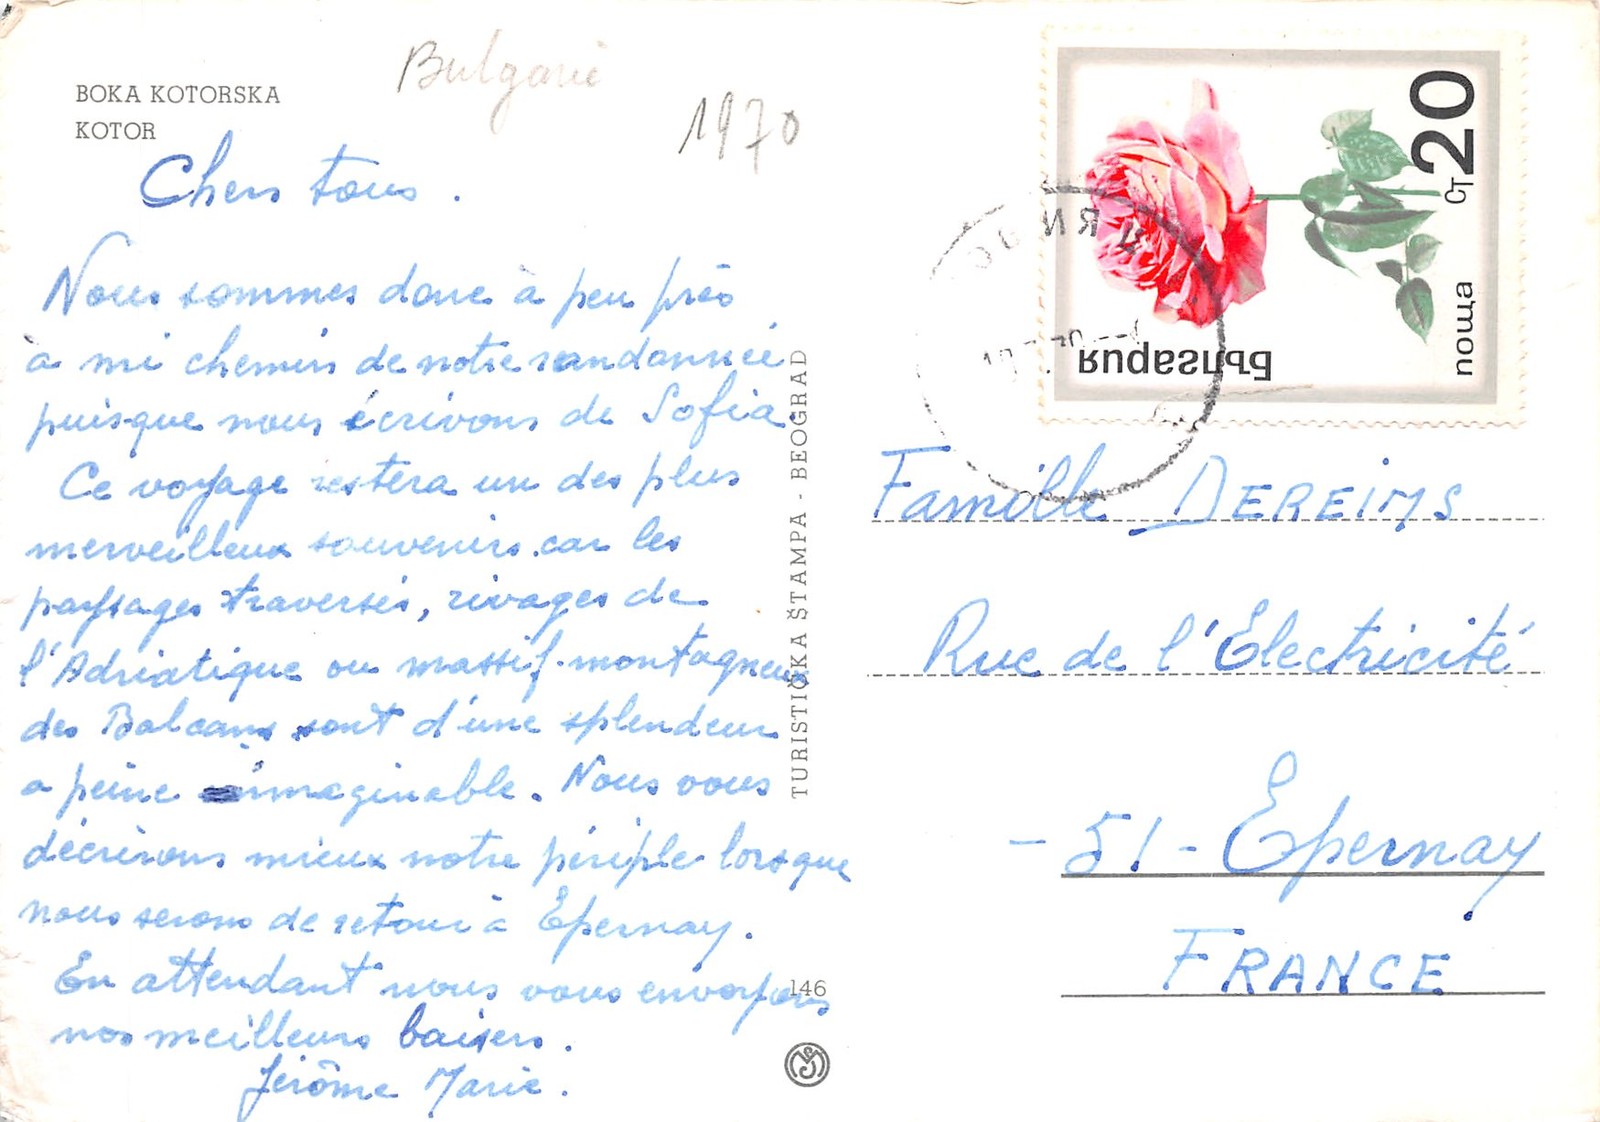 BOKA KOTORSKA
KOTOR
Bulgarie
1970
Chers tous.
Nous sommes donc à peu près
à mi chemin de notre randonnée
puisque nous écrivons de Sofia.
Ce voyage restera un des plus
merveilleux souvenirs car les
paysages traversés, rivages de
l'Adriatique ou massif montagneux
des Balcans sont d'une splendeur
a peine inimaginable. Nous vous
décrirons mieux notre périple lorsque
nous serons de retour à Epernay.
En attendant nous vous envoyons
nos meilleurs baisers.
Jérôme Marie.
TURISTIČKA ŠTAMPA - BEOGRAD
146
България
поща
20 СТ
Famille DEREIMS
Rue de l'Electricité
- 51 - Epernay
FRANCE